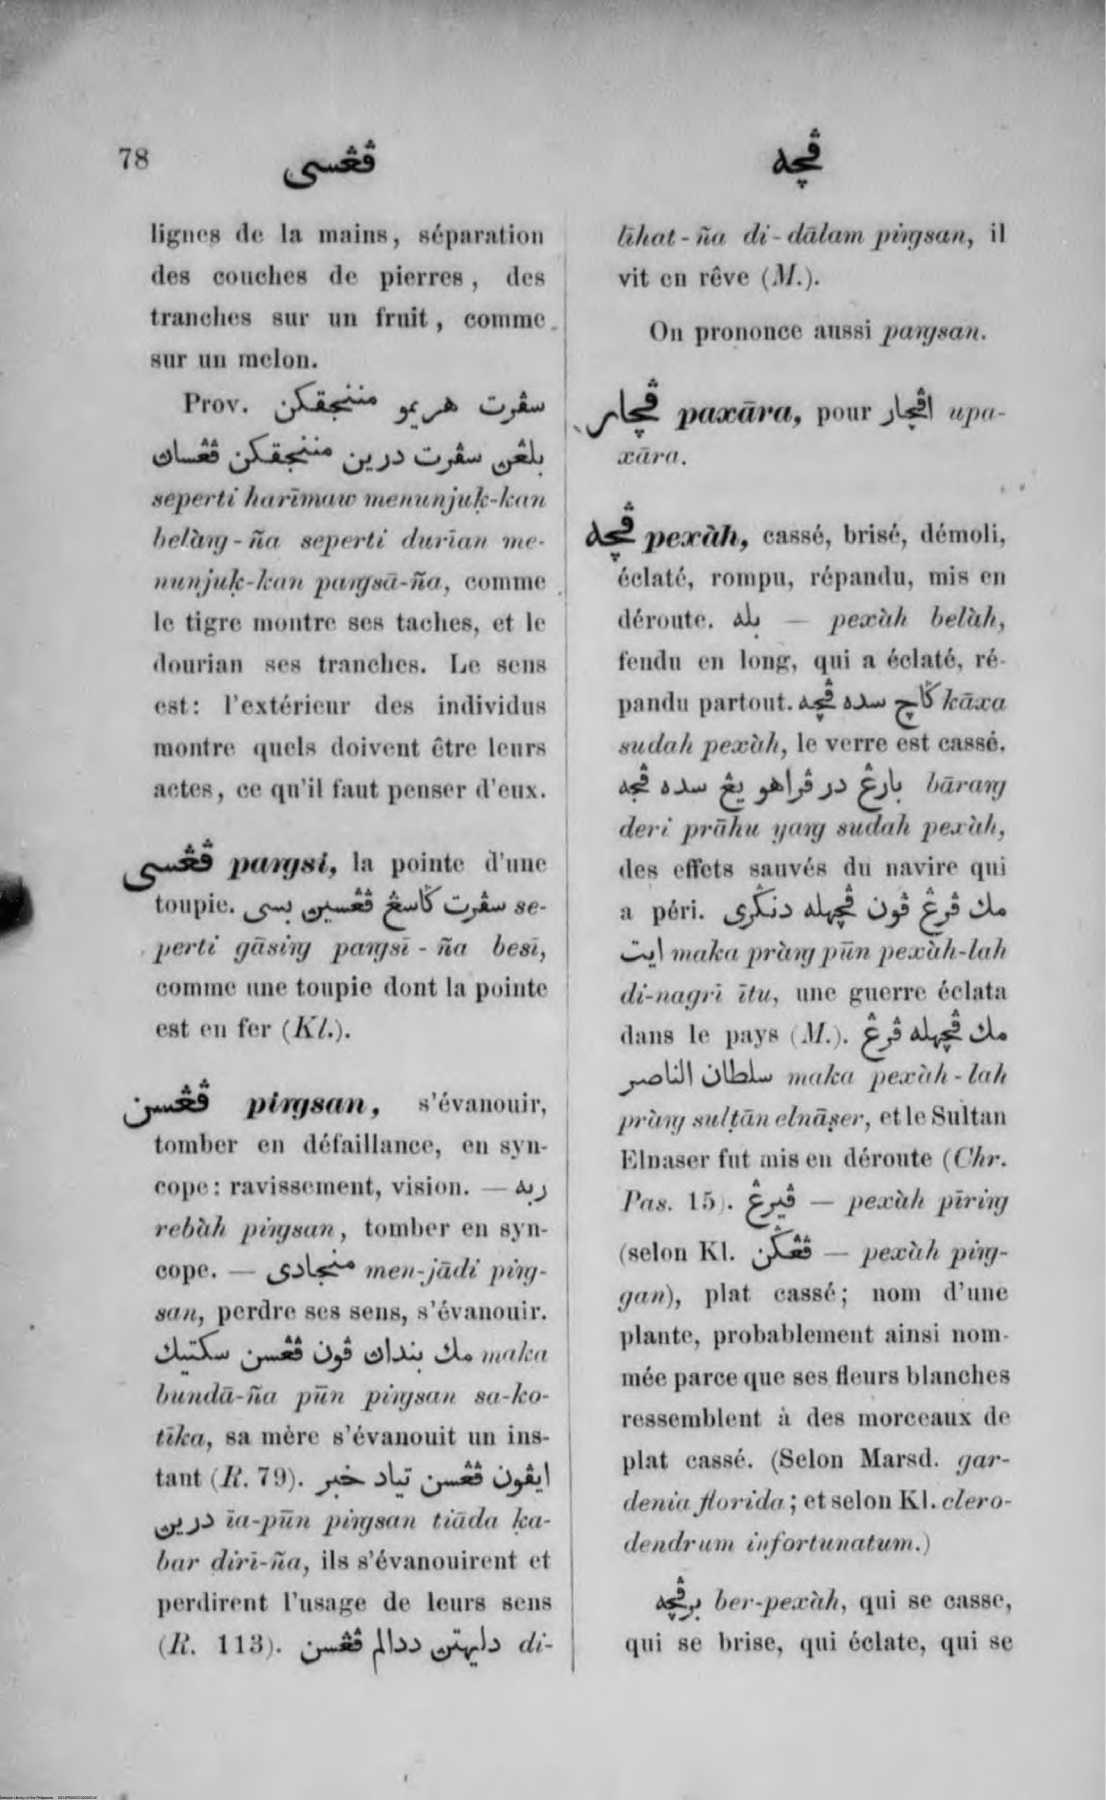 78
ڤڠسي
ڤچه
lignes de la mains, séparation
des couches de pierres, des
tranches sur un fruit, comme
sur un melon.
Prov. سڤرت هريمو مننجقكن
بلڠن سڤرت درين مننجقكن ڤڠسان
seperti harīmaw menunjuḳ-kan
belàƞg-ña seperti durīan me-
nunjuḳ-kan paƞgsā-ña, comme
le tigre montre ses taches, et le
dourian ses tranches. Le sens
est: l'extérieur des individus
montre quels doivent être leurs
actes, ce qu'il faut penser d'eux.
ڤڠسي paƞgsi, la pointe d'une
toupie. سڤرت ݢاسڠ ڤڠسين بسي se-
perti gāsiƞg paƞgsī-ña besī,
comme une toupie dont la pointe
est en fer (Kl.).
ڤڠسن piƞgsan, s'évanouir,
tomber en défaillance, en syn-
cope: ravissement, vision. — ربه
rebàh piƞgsan, tomber en syn-
cope. — منجادي men-jādi piƞg-
san, perdre ses sens, s'évanouir.
مك بندان ڤون ڤڠسن سكتيك maka
bundā-ña pūn piƞgsan sa-ko-
tīka, sa mère s'évanouit un ins-
tant (R. 79). ايڤون ڤڠسن تياد خبر
درين īa-pūn piƞgsan tiāda ḳa-
bar dirī-ña, ils s'évanouirent et
perdirent l'usage de leurs sens
(R. 113). دليهتن ددالم ڤڠسن di-
līhat-ña di-dālam piƞgsan, il
vit en rêve (M.).
On prononce aussi paƞgsan.
ڤچار paxāra, pour اڤچار upa-
xāra.
ڤچه pexàh, cassé, brisé, démoli,
éclaté, rompu, répandu, mis en
déroute. بله — pexàh belàh,
fendu en long, qui a éclaté, ré-
pandu partout. ݢاچ سده ڤچه kāxa
sudah pexàh, le verre est cassé.
بارڠ در ڤراهو يڠ سده ڤچه bāraƞg
deri prāhu yaƞg sudah pexàh,
des effets sauvés du navire qui
a péri. مك ڤرڠ ڤون ڤچهله دنݢري
ايت maka pràƞg pūn pexàh-lah
di-nagrī ītu, une guerre éclata
dans le pays (M.). مك ڤچهله ڤرڠ
سلطان الناصر maka pexàh-lah
pràƞg sulṭān elnāṣer, et le Sultan
Elnaser fut mis en déroute (Chr.
Pas. 15). ڤيرڠ — pexàh pīriƞg
(selon Kl. ڤڠݢن — pexàh piƞg-
gan), plat cassé; nom d'une
plante, probablement ainsi nom-
mée parce que ses fleurs blanches
ressemblent à des morceaux de
plat cassé. (Selon Marsd. gar-
denia florida; et selon Kl. clero-
dendrum infortunatum.)
برڤچه ber-pexàh, qui se casse,
qui se brise, qui éclate, qui se